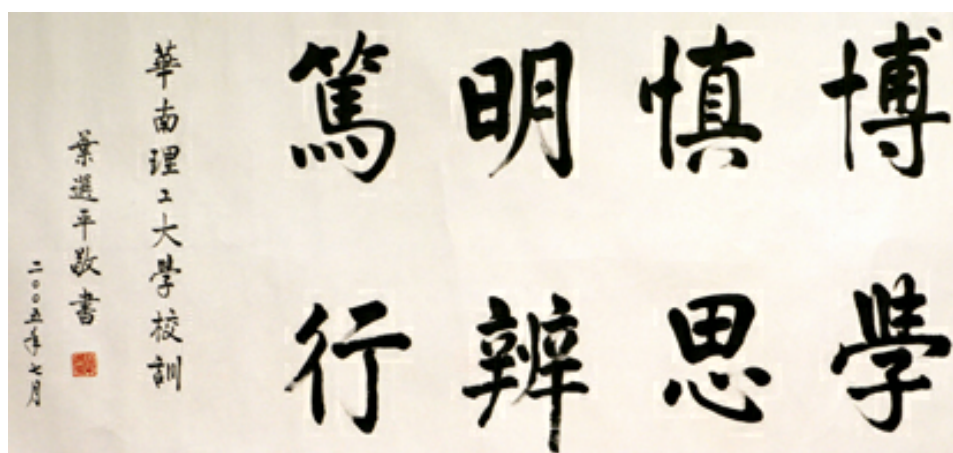 博學
慎思
明辨
篤行
華南理工大學校訓
葉選平敬書
二○○五年七月